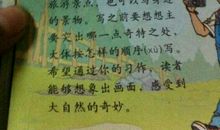 旅游景点，也可以写身边
的景物。写之前要想想主
要突出哪一点奇特之处，
大体按怎样的顺序(xù)写，
希望通过你的习作，读者
能够想象出画面，感受到
大自然的奇妙。